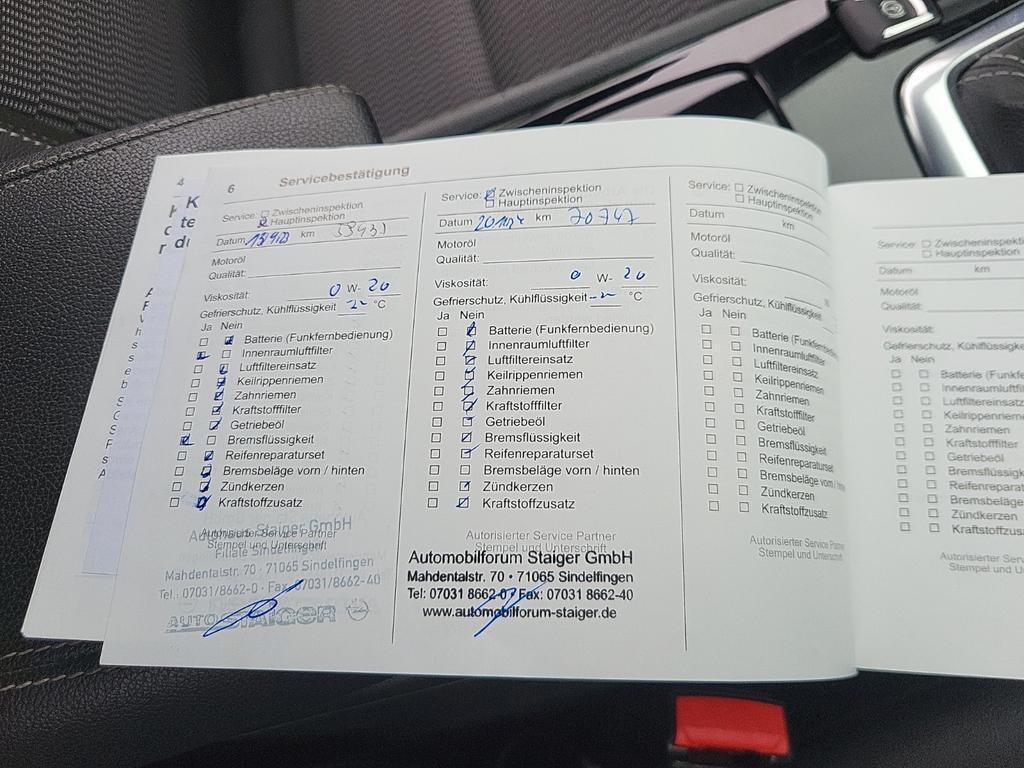 4
6 Servicebestätigung
K
te
Service: Zwischeninspektion
Hauptinspektion
Datum km
Motoröl
Qualität:
Viskosität: 0 W- 20
Gefrierschutz, Kühlflüssigkeit °C
Ja Nein
Batterie (Funkfernbedienung)
Innenraumluftfilter
Luftfiltereinsatz
Keilrippenriemen
Zahnriemen
Kraftstofffilter
Getriebeöl
Bremsflüssigkeit
Reifenreparaturset
Bremsbeläge vorn / hinten
Zündkerzen
Kraftstoffzusatz
Autorisierter Service Partner
Stempel und Unterschrift
Staiger GmbH
Filiale Sindelfingen
Mahdentalstr. 70 · 71065 Sindelfingen
Tel.: 07031/8662-0 · Fax: 07031/8662-40
AUTO STAIGER
Service: Zwischeninspektion
Hauptinspektion
Datum km 70747
Motoröl
Qualität:
Viskosität: 0 W- 20
Gefrierschutz, Kühlflüssigkeit °C
Ja Nein
Batterie (Funkfernbedienung)
Innenraumluftfilter
Luftfiltereinsatz
Keilrippenriemen
Zahnriemen
Kraftstofffilter
Getriebeöl
Bremsflüssigkeit
Reifenreparaturset
Bremsbeläge vorn / hinten
Zündkerzen
Kraftstoffzusatz
Autorisierter Service Partner
Stempel und Unterschrift
Automobilforum Staiger GmbH
Mahdentalstr. 70 · 71065 Sindelfingen
Tel: 07031 8662-0 · Fax: 07031 8662-40
www.automobilforum-staiger.de
Service: Zwischeninspektion
Hauptinspektion
Datum km
Motoröl
Qualität:
Viskosität:
Gefrierschutz, Kühlflüssigkeit
Ja Nein
Batterie (Funkfernbedienung
Innenraumluftfilter
Luftfiltereinsatz
Keilrippenriemen
Zahnriemen
Kraftstofffilter
Getriebeöl
Bremsflüssigkeit
Reifenreparaturset
Bremsbeläge vorn / hin
Zündkerzen
Kraftstoffzusatz
Autorisierter Service Partner
Stempel und Unterschrift
Service: Zwischeninspekti
Hauptinspektion
Datum km
Motoröl
Qualität:
Viskosität:
Gefrierschutz, Kühlflüssigke
Ja Nein
Batterie (Funkfe
Innenraumluftfi
Luftfiltereinsatz
Keilrippenrieme
Zahnriemen
Kraftstofffilter
Getriebeöl
Bremsflüssigk
Reifenreparat
Bremsbeläge
Zündkerzen
Kraftstoffzusa
Autorisierter Servic
Stempel und Un